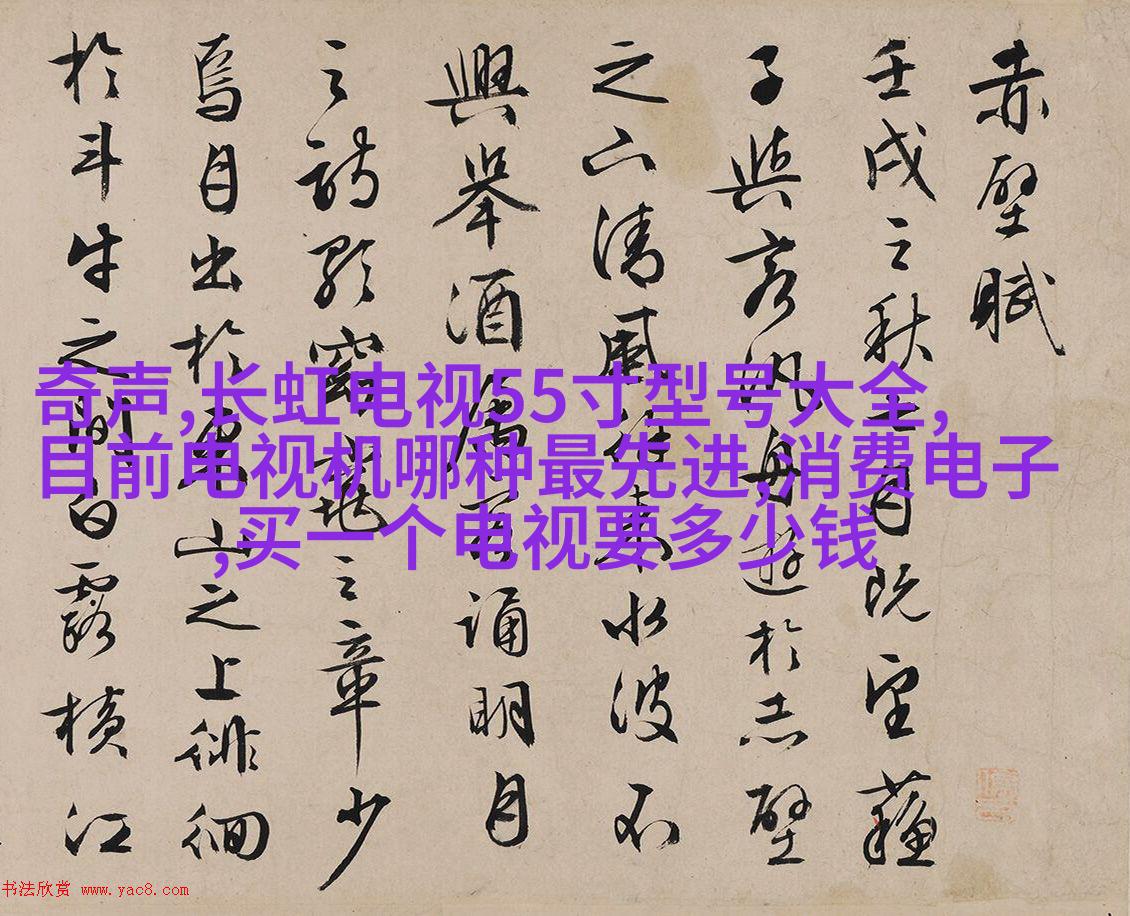 赤壁賦
壬戌之秋七月既望蘇
子與客汎舟遊於赤壁
之下清風徐來水波不
興舉酒屬客誦明月
之詩歌窈窕之章少
焉月出於東山之上徘徊
於斗牛之間白露橫江
奇声,长虹电视55寸型号大全,
目前电视机哪种最先进,消费电子
,买一个电视要多少钱
书法欣赏 www.yac8.com